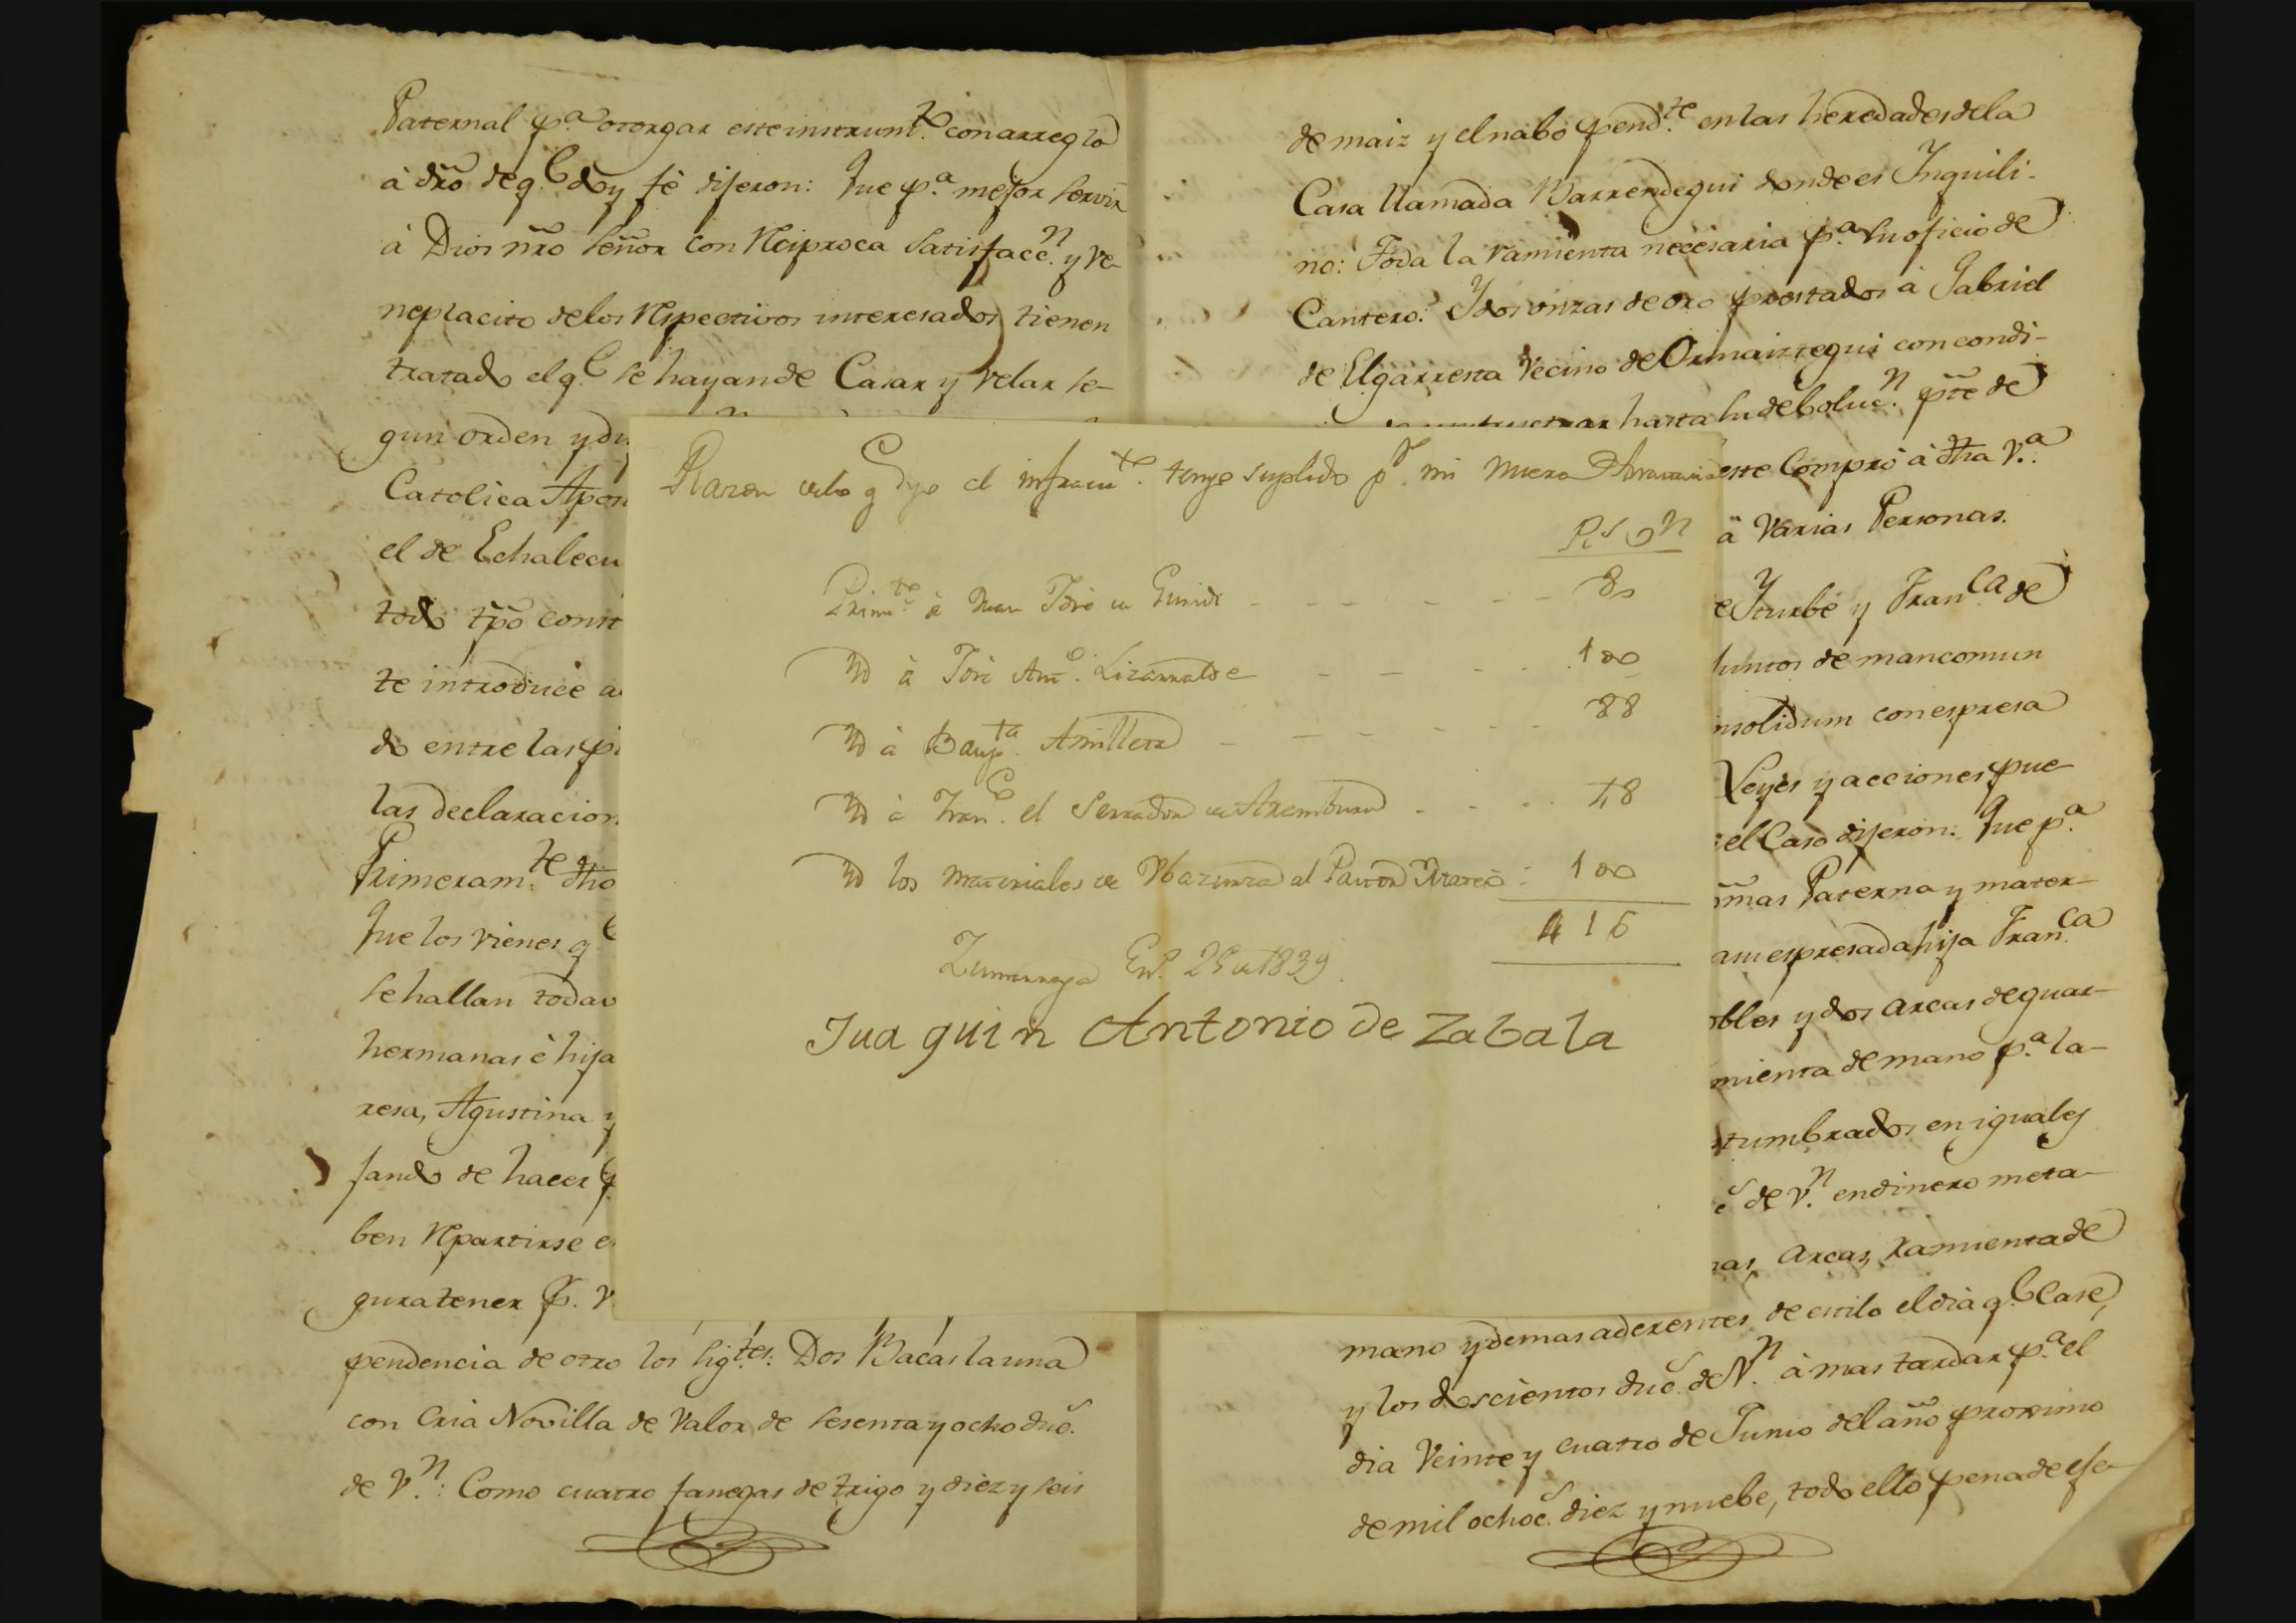 Paternal p.ª otorgar este instrum.te con arreglo
à dr̃o de q.l doy fè dijeron: Que p.ª mejor servir
à Dios nr̃o señor con reciproca satisfacc.n y ve-
neplacito de los respectivos interesados tienen
tratado el q.l se hayan de Casar y velar se-
gun orden y di
Catolica Apos
el de Echalecu
todo tp̃o const
te introduce a
do entre las pi
las declaracion
Primeram.te dho
Que los vienes q.l
se hallan todav
hermanas è hija
resa, Agustina y
sando de hacer
ben repartirse e
gura tener p. v
pendencia de otro los sig.tes: Dos Bacas la una
con Cria Novilla de Valor de sesenta y ocho duc.s
de V.n: Como cuatro fanegas de trigo y diez y seis
de maiz y el nabo pend.te en las heredades de la
Casa llamada Barrendegui donde es Inquili-
no: Toda la ramienta necesaria p.ª su oficio de
Cantero: Y dos onzas de oro prestados à Gabriel
de Elgarresta Vecino de Ormaiztegui con condi-
hasta su deboluc.n pr̃te de
este Comprò à dha V.ª
à Varias Personas.
e Yturbe y Fran.ca de
juntos de mancomun
insolidum con espresa
Leyes y acciones pue-
el Caso dijeron: Que p.ª
mas Paterna y mater-
a su espresada hija Fran.ca
obles y dos arcas de guar-
mienta de mano p.ª la-
stumbrados en iguales
s de V.n en dinero meta-
nas, arcas, ramienta de
mano y demas aderentes de estilo el dia q.l Case,
y los doscientos duc.s de V.n à mas tardar p.ª el
dia Veinte y cuatro de Junio del año proximo
de mil ochoc.s diez y nuebe, todo ello pena de ese-
Razon de lo q digo el infraen.te tengo suplido p.r mi nuera
R.s V.n
Prim.te à Juan José de 80
Yd à José Ant.o Lizarralde 100
Yd à Baup.ta Amilleta 88
Yd à Fran.co el Serrador de Aramburu 48
Yd los materiales de al Pastor Mateo 100
416
Zumarraga En.o 25 de 1839
Juaquin Antonio de Zabala